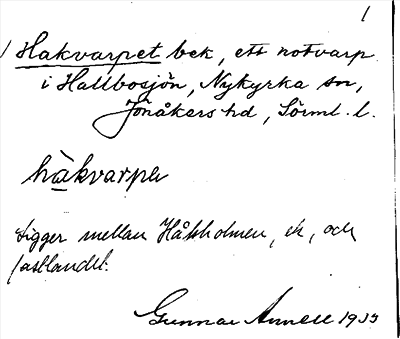 1
Hakvarpet bek, ett notvarp
i Hallbosjön, Nykyrka sn,
Jönåkers hd, Sörml. l.
hàkvarpet
Ligger mellan Håkholmen, ek, och
fastlandet.
Gunnar Annell 1935